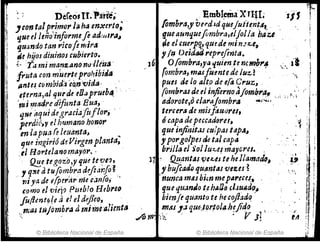 Deseos II. Parte,
y con tal primor la ha enxerto,
que el leño informe se admira,
quando tan rico se mira
de hijos divinos cubierto.
Ya mi manzano no lleva
fruta con muerte prohibida
antes combida con vida
eterna, al que de ella prueba
mi madre difunta Eua,
que aqui de gracia su flor,
perdiò, y el humano honor
en la pua se leuanta,
que ingiriò de Virgen planta,
el Hortelano mayor.
Que te gozo, y que te veo,
y que à tu sombra descanso?
ni ya de esperar me canso,
como el viejo Pueblo Hebreo
sustentole à el el desseo,
mas tu sombra à mi me alienta
Emblema XIIII. 155
sombra, y verdad que sustenta,
que aunque sombra, el sol la haze
de el cuerpo, que de mi nace,
y su Deidad representa.
O sombra, ya quien te nombra
sombra, mas fuente de luz?
pues de lo alto de essa Cruz,
sombras de el infierno assombra,
adorote, ò clara sombra
tercera de mis fauores,
ò capa de peccadores,
que infinitas culpas tapa,
y por golpes de tal capa
brilla el Sol luzes mayores.
Quantas vezes te he llamado,
y buscado quantas vezes?
nunca mas bien me pareces,
que quando te hallo clauado,
bien se quanto te he costado
mas ya que tortola he sido
V 3